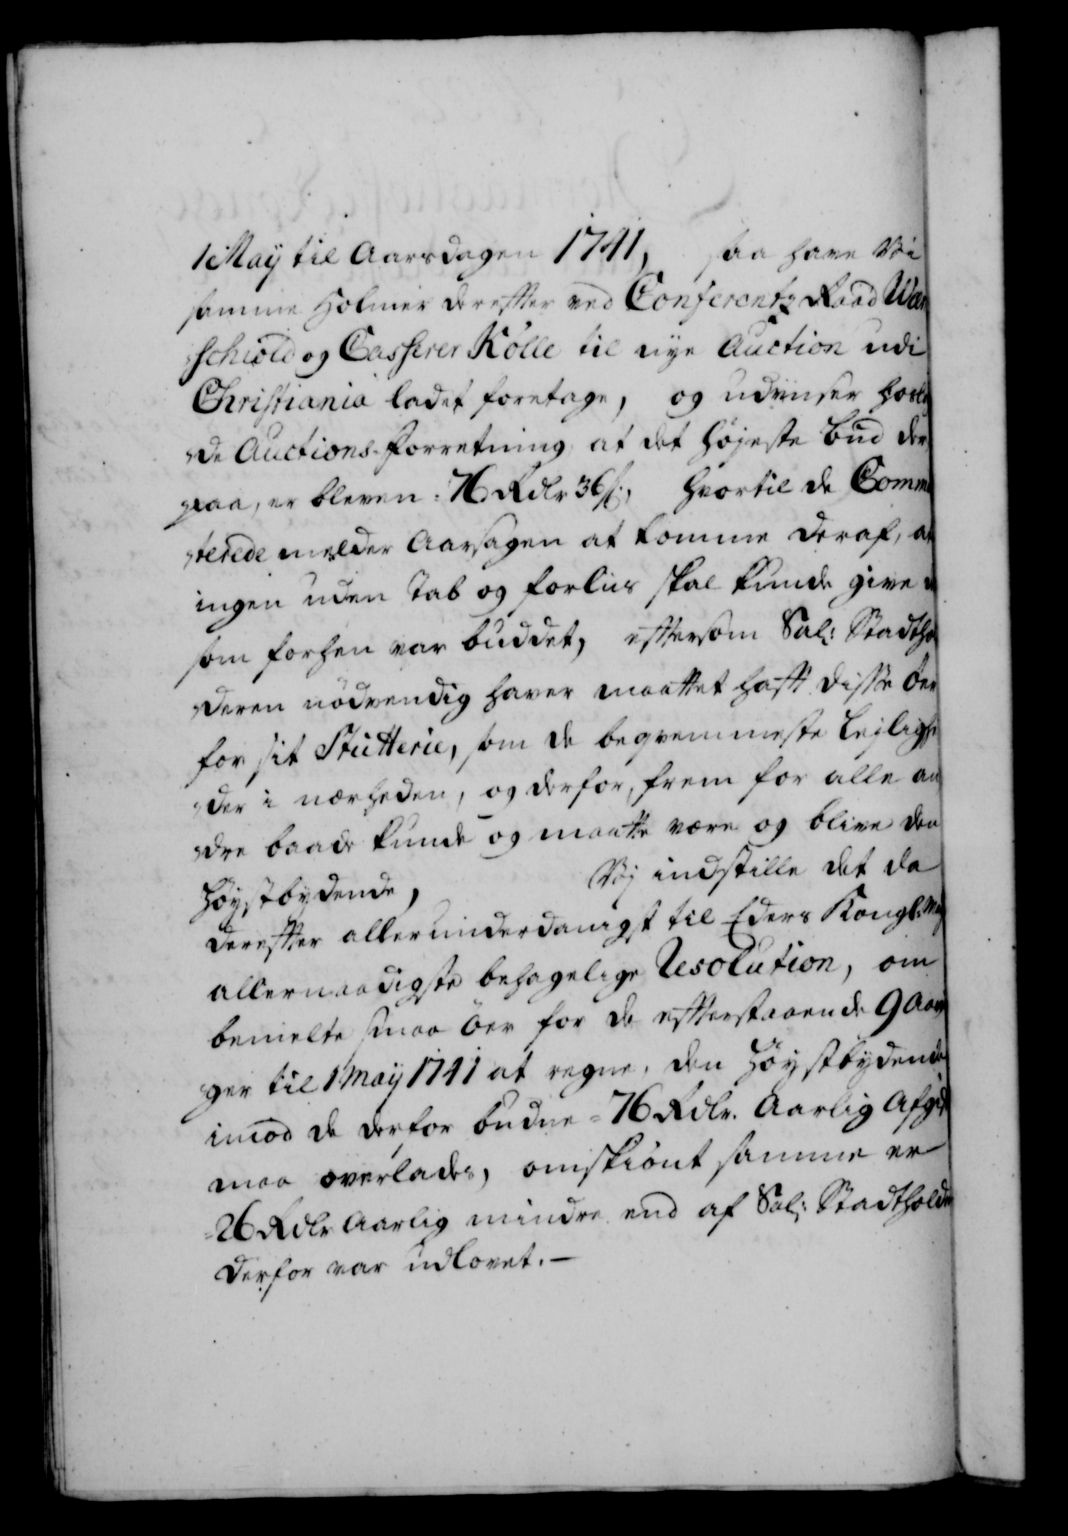 1 Maÿ til Aarsdagen 1741, saa have Vi
samme Holmer derefter ved Conferentz Raad War
schiold og Casserer Kölle til nye Auction udi
Christiania ladet foretage, og udviiser
de Auctions-Forretning at det Høyeste bud der
paa, er bleven: 76 Rdlr 36 s:, Hvortil de Commi
terede melder Aarsagen at komme deraf, at
ingen uden Tab og forliis skal kunde give
som forhen var buddet, eftersom Sal: Stadthol
deren nödvendig haver maattet haft disse Öer
for sit Stutterie, som de beqvemmeste Leylighe
der i nærheden, og derfor, frem for alle an
dre baade kunde og maatte være og blive den
Høystbydende, Vj indstille det da
derefter allerunderdanigst til Eders Kongl: May
allernaadigste behagelige Resolution, om
bemelte smaa Öer for de efterstaaende 9 Aar
ger til 1 Maÿ 1741 at regne, den Høystbydende
imod de derfor budne = 76 Rdlr. Aarlig Afgift
maa overlades, omskiönt samme er
= 26 Rdlr Aarlig mindre end af Sal: Stadtholder
derfor var udlovet. —